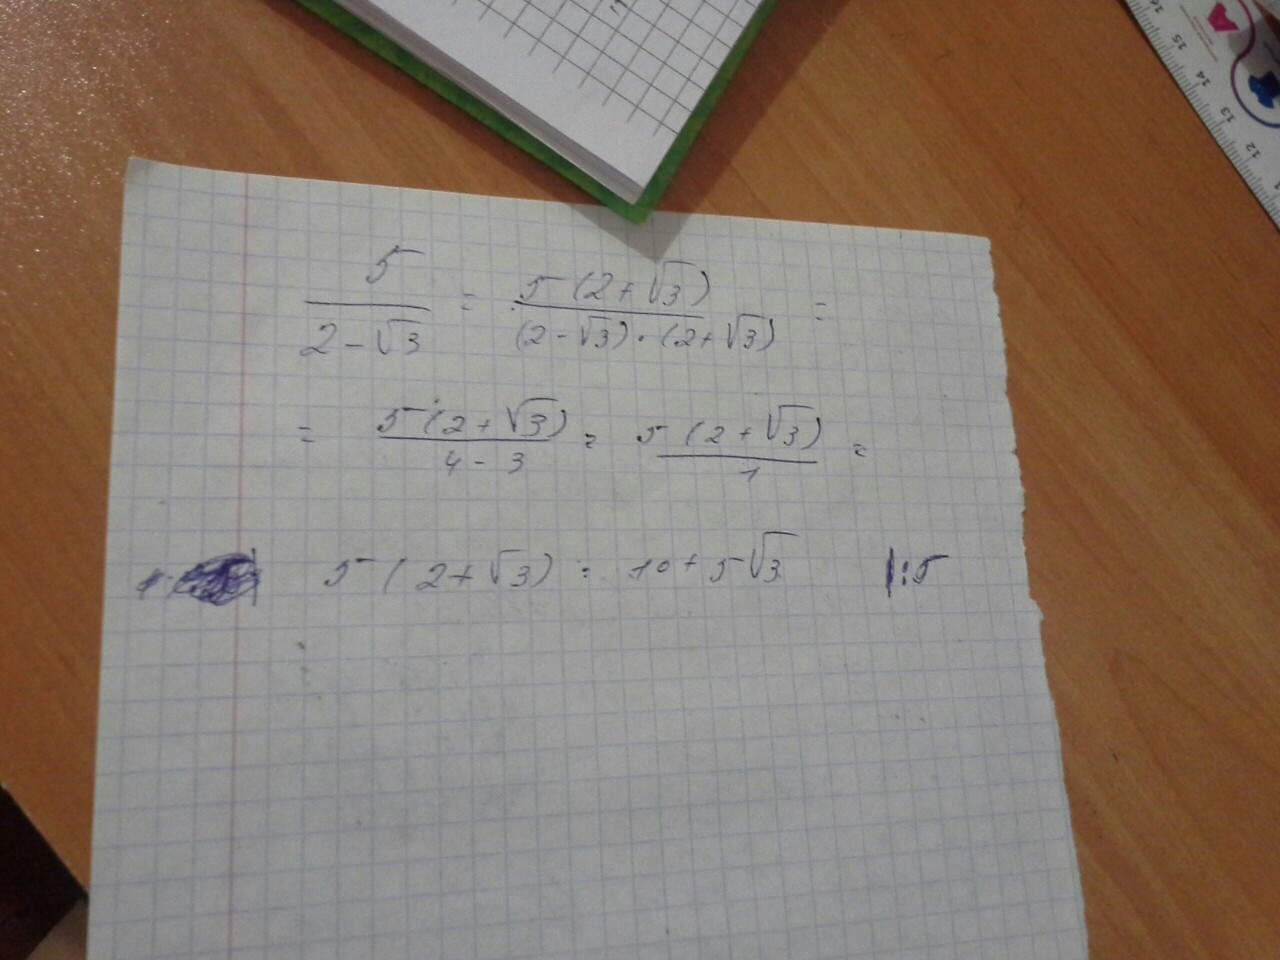 5/(2-√3) = 5(2+√3)/((2-√3)·(2+√3)) =
= 5(2+√3)/(4-3) = 5(2+√3)/1 =
5(2+√3) = 10+5√3 |:5
16
15
14
13
12